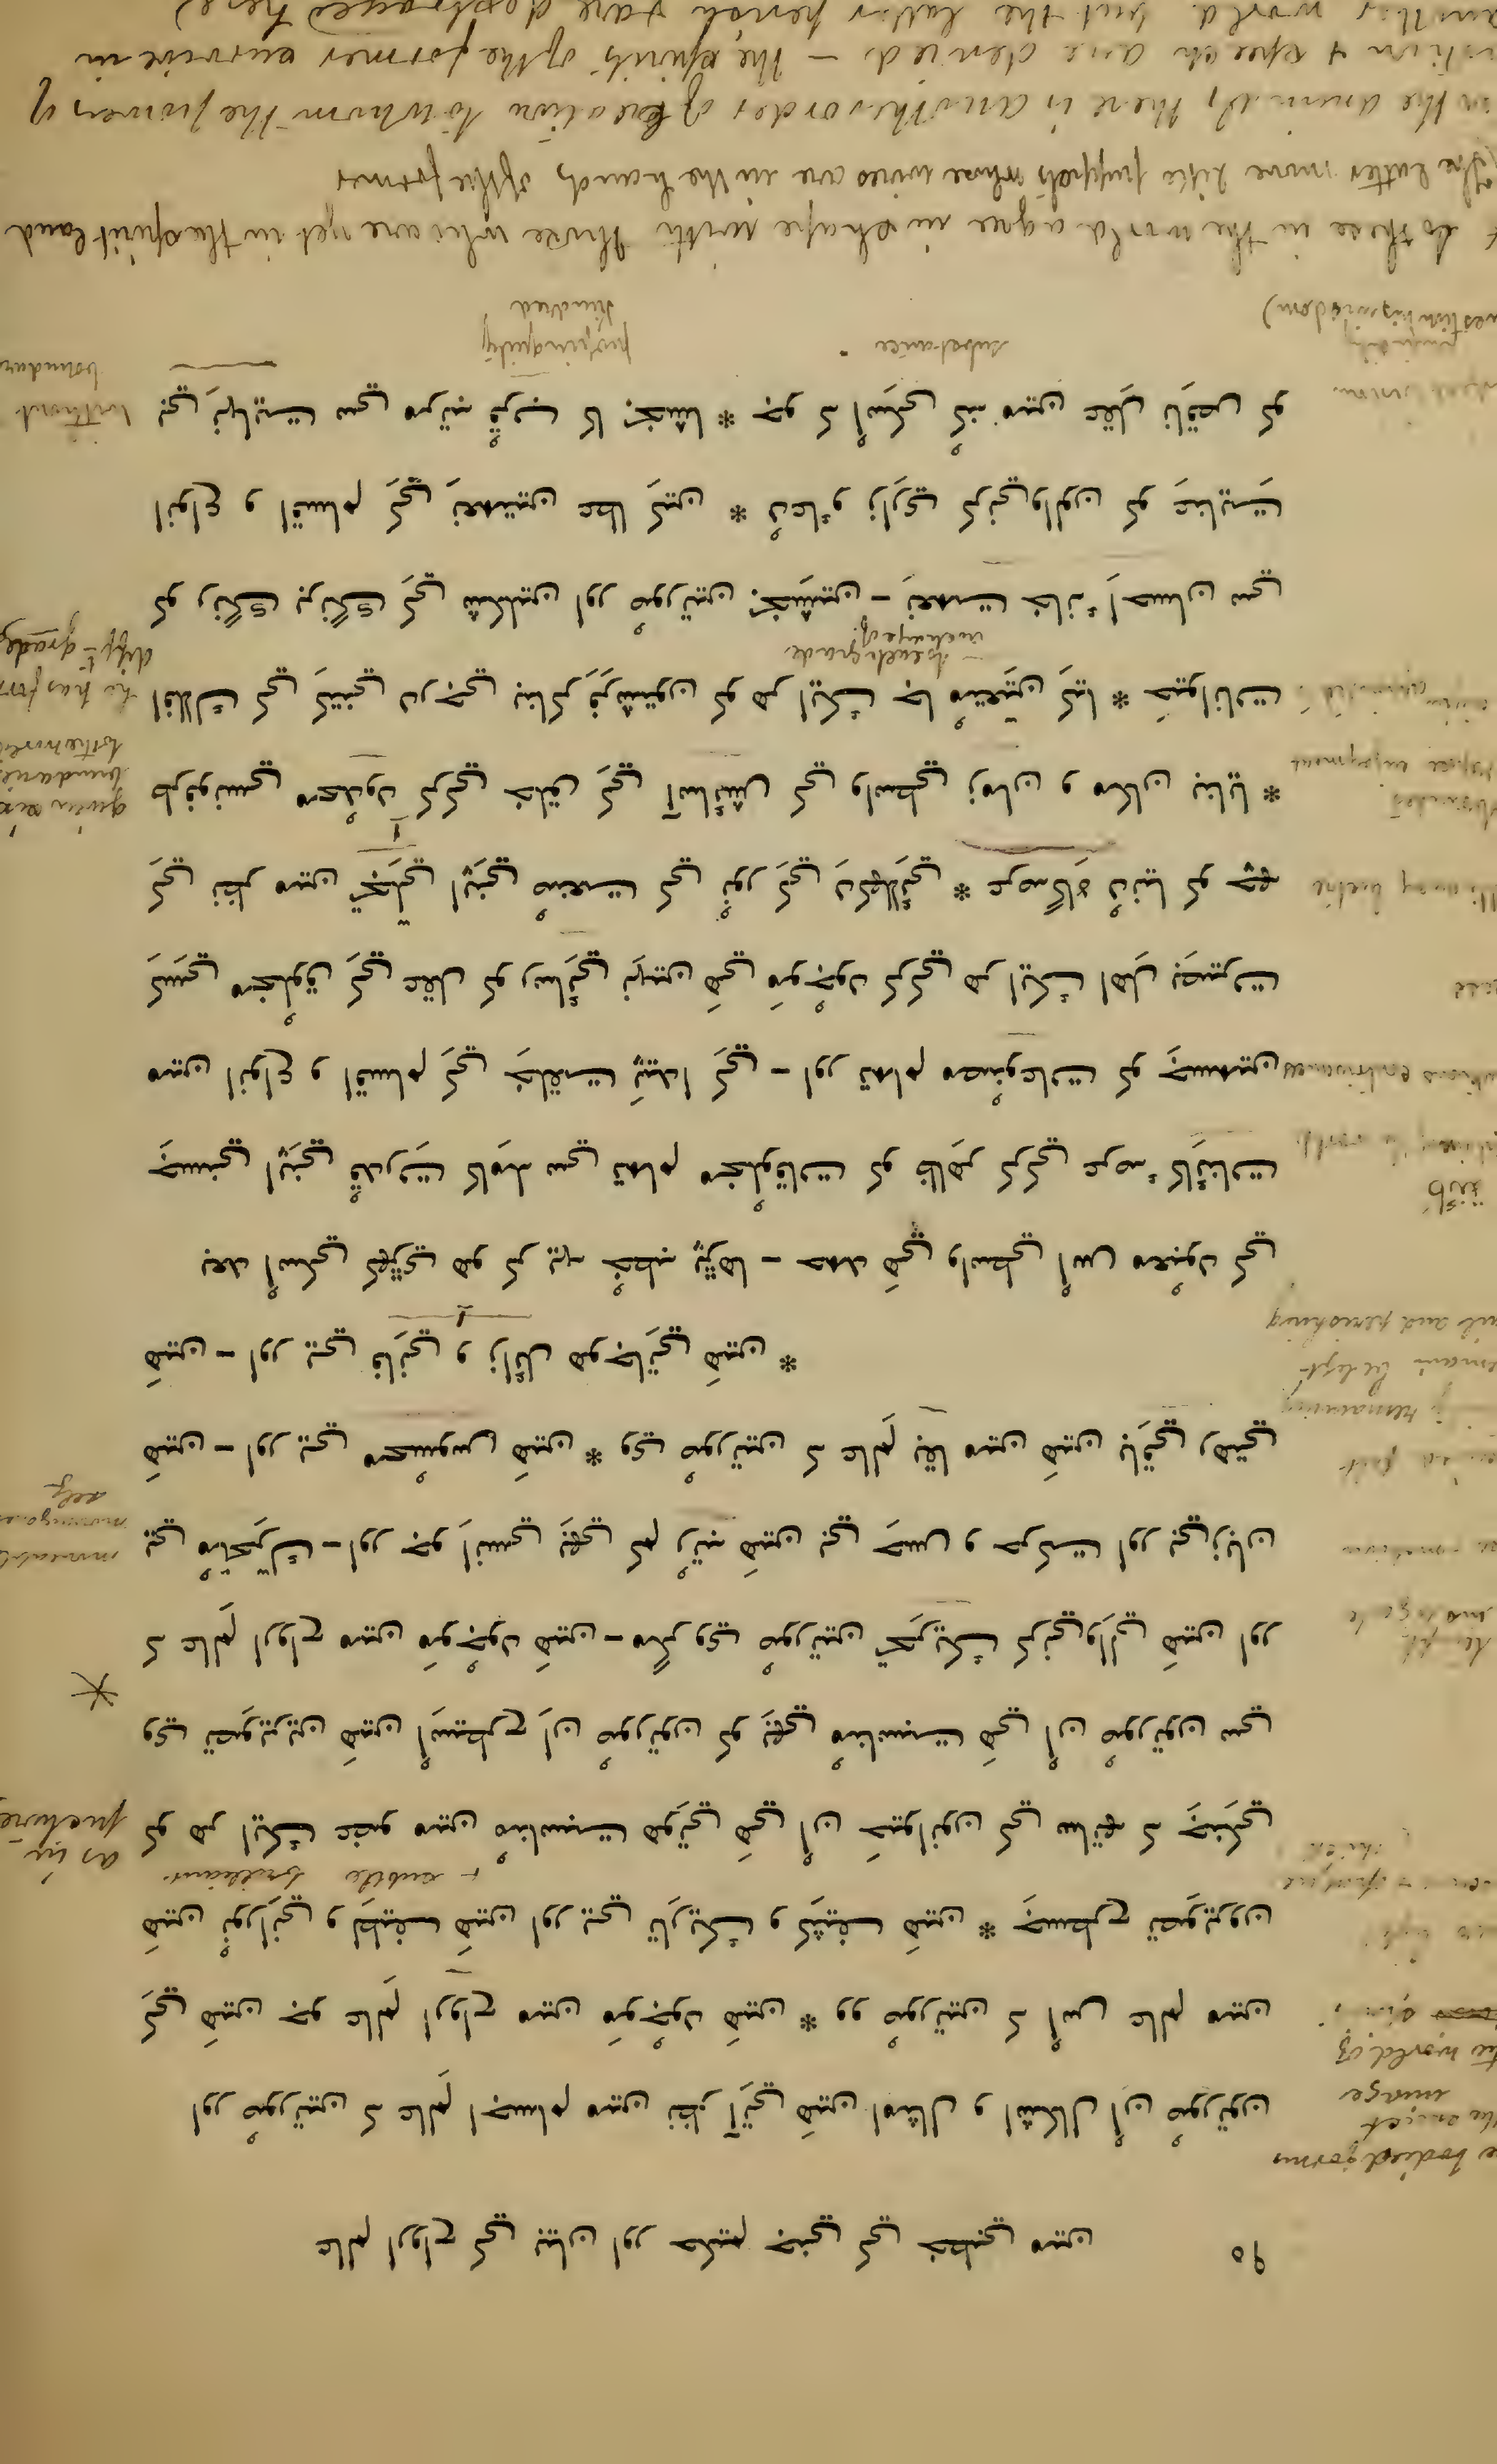 ٩٥
عالم ارواح کي بيان اور حکيم جني کي خطبي مين
اور صورتين که عالم اجسام مين نظر آتي هين امثال و اشکال اُن صورتون
کي هين جو عالم ارواح مين موجود هين * وو صورتين که اُس عالم مين
هين نوراني و لطيف هين اور يي تاريک و کثيف هين * جسطرح تصويرون
& subtle brilliant
کو هر ايک عضو مين مناسبت هوتي هي اُن حيوانون کي ساتھ که جنکي
as in
picture
وي تصويرين هين اُسيطرح اِن صورتون کو بھي مناسبت هي اُن صورتون سي
که عالم ارواح مين موجود هين - مگر وي صورتين تحريک کرنيوالي هين اور
يي متحرک - اور جو اِنسي بھي کم رتبه هين بي حس و حرکت اور بيزبان
هين - اور يي محسوس هين * وي صورتين که عالم بقا مين هين باقي رهتي
هين - اور يي فاني و زائل هوجاتي هين *
remaining
and perishing
بعد اُسکي کھڙي هو کر يه خطبه پڙها - حمد هي واسطي اُس معبود کي
جسني اپني قدرت کامله سي تمام مخلوقات کو ظاهر کرکي عرصهٔ کائنات
مين انواع و اقسام کي خلقت پيدا کي - اور تمام مصنوعات کو جسمين
کسي مخلوق کي عقل کو رسائي نهين هي موجود کرکي هر ايک اهل بصيرت
کي نظر مين تجلي اپني صنعت کي نور کي دکھلائي * عرصهگاه دنيا کو چھ
طرفونسي محدود کرکي خلق کي آسائش کي واسطي زمان و مکان بنايا *
given six
boundaries
to the world
افلاک کي کتني درجي بناکر فرشتون کو هر ايک جا متعين کيا * حيوانات
to each grade
کو رنگ برنگ کي شکلين اور صورتين بخشين - نعمت خانهٔ احسان سي
انواع و اقسام کي نعمتين عطا کين * دعا و زاري کرنيوالون کو عنايت
بي نهايت سي مرتبه قرب کا بخشا * جو که اُسکي کنه مين عقل ناقص کو
without
substance
propinquity
kindred
* So these in the world agree in shape with those who are yet in the spirit land
(The latter move like puppets whose wires are in the hands of the former
in the animals there is another order of Creation to whom the powers of
motion & speech are denied – the spirits of the former survive in
another world but the latter perish & are destroyed here)